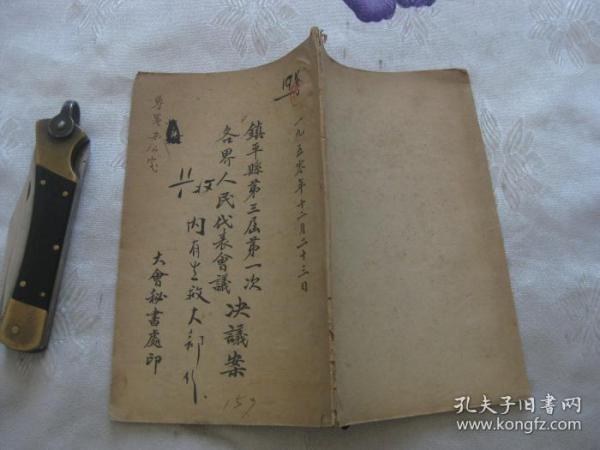 一九五零年十二月二十三日
鎮平縣第三屆第一次
各界人民代表會議
决議案
内有生救大部份
大會秘書處印
159
孔夫子旧书网
www.kongfz.com